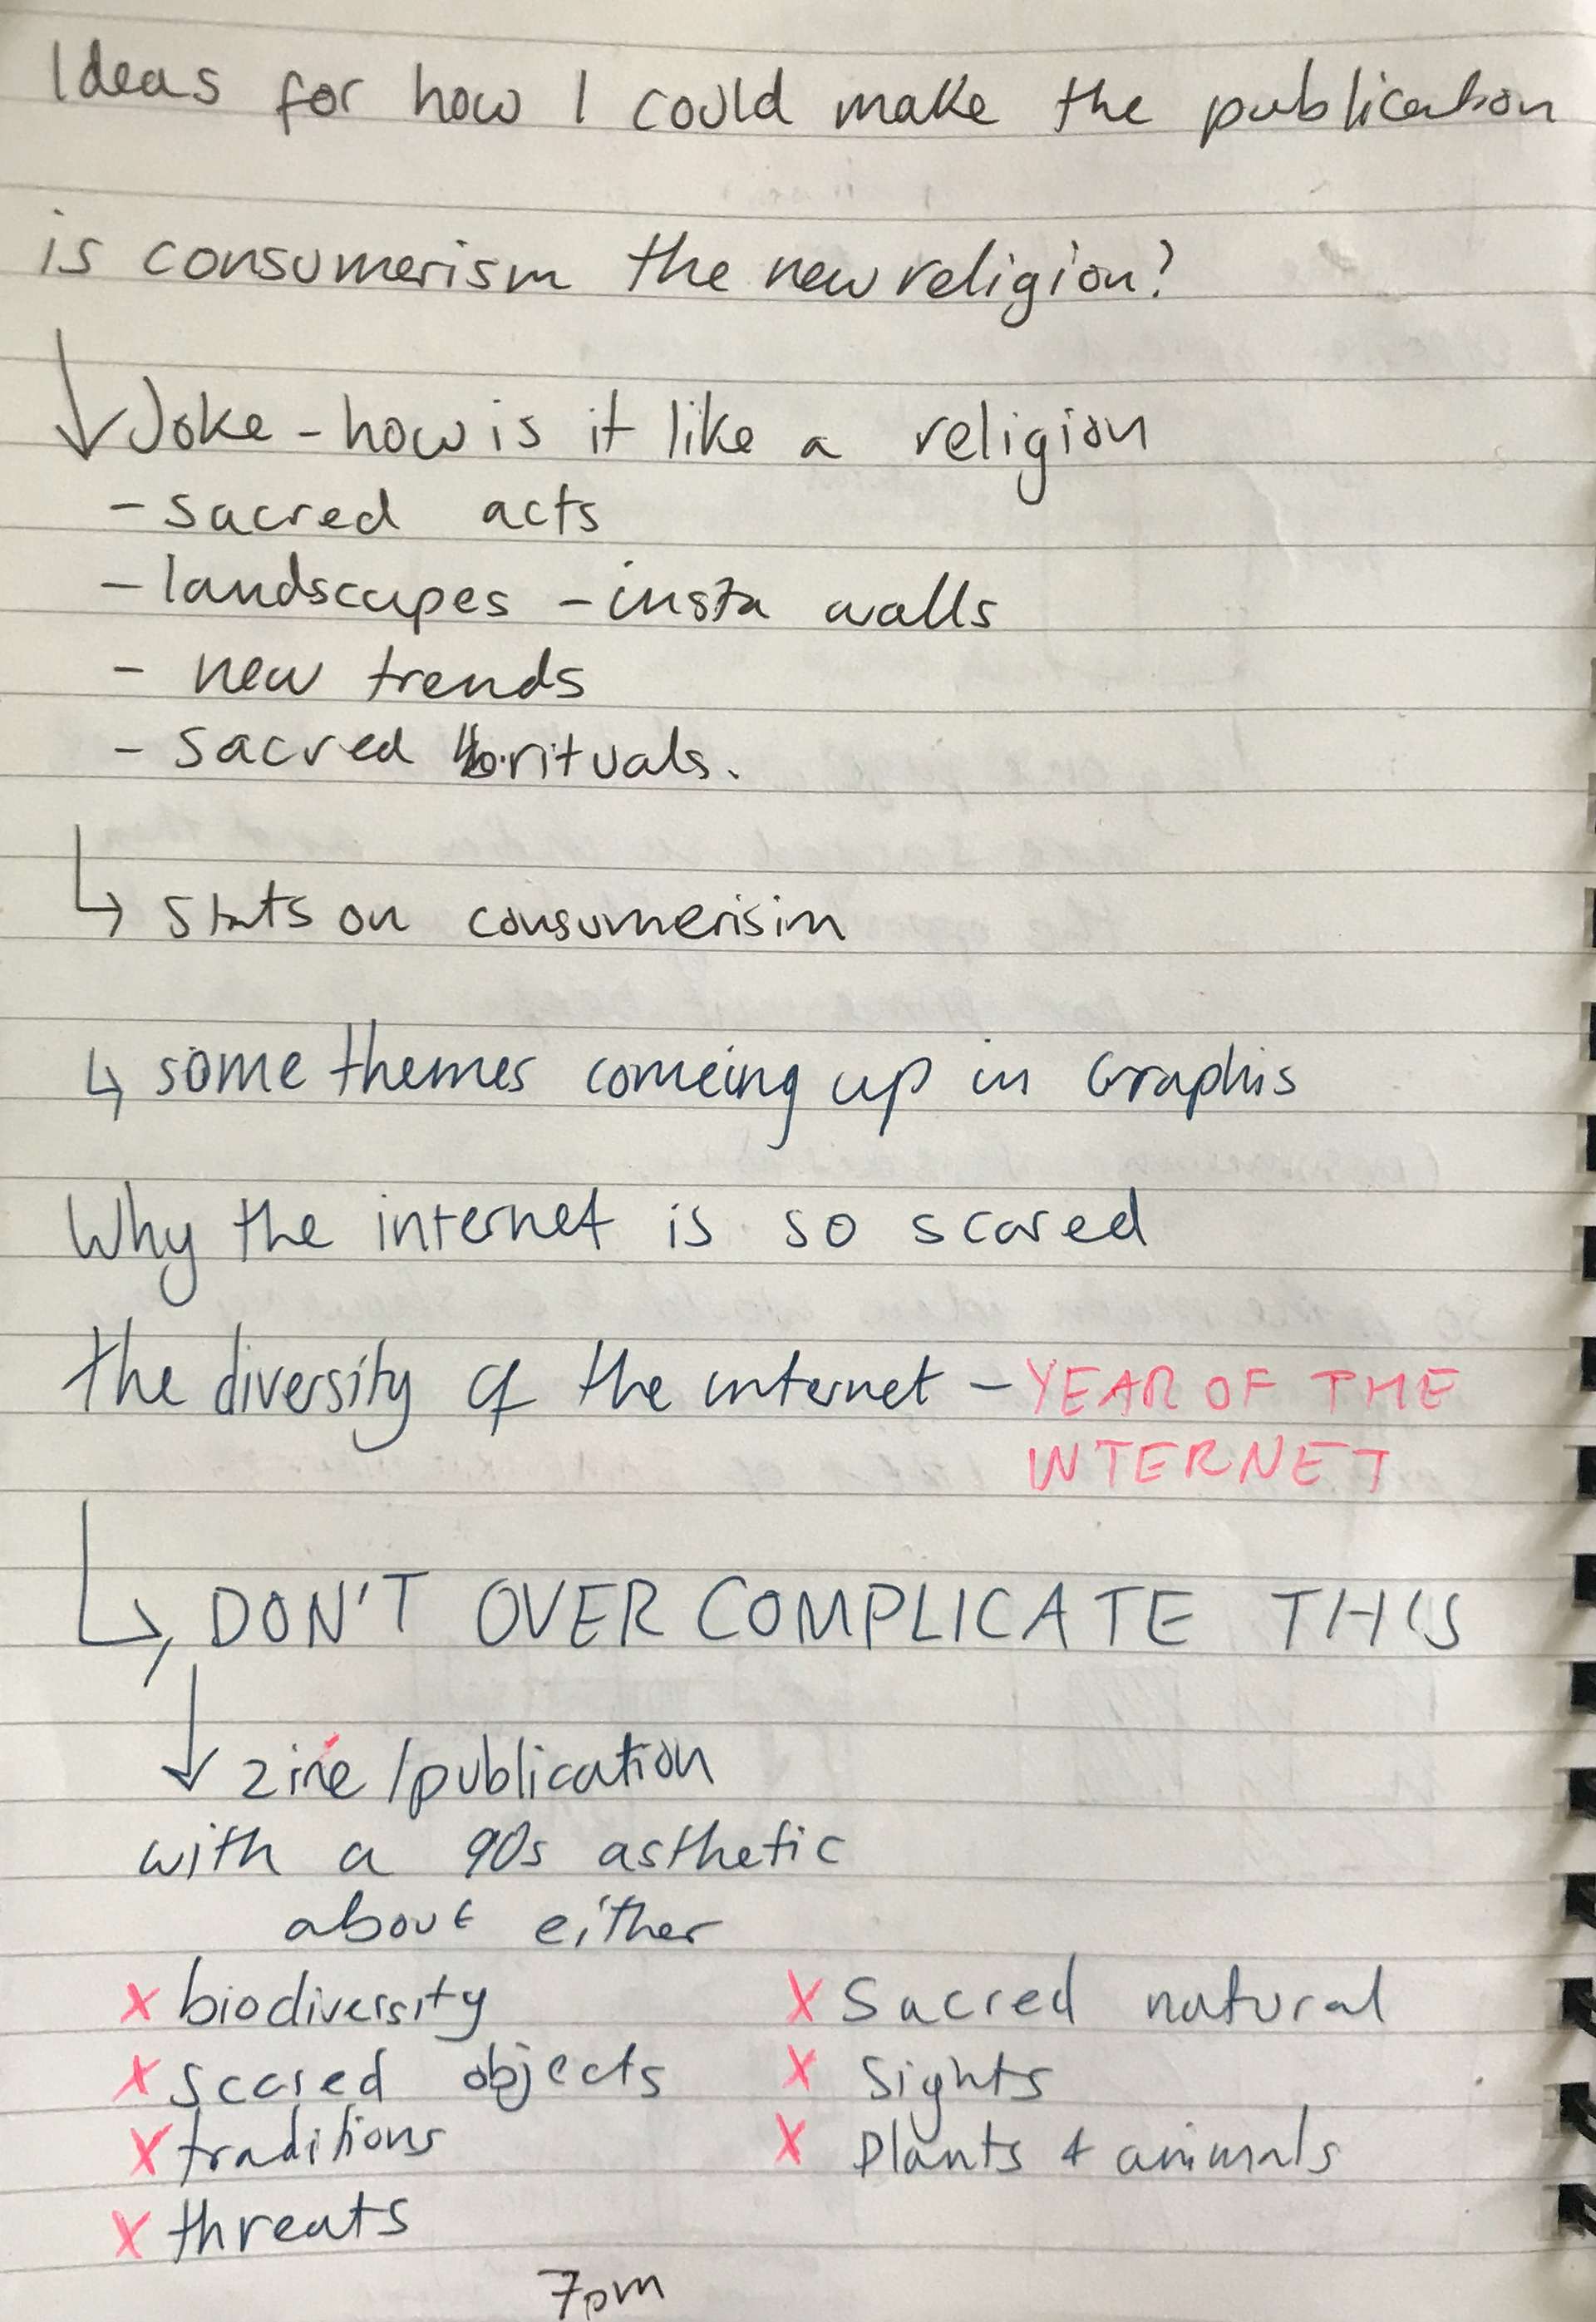 Ideas for how I could make the publication
is consumerism the new religion?
↓ Joke - how is it like a religion
- sacred acts
- landscapes - insta walls
- new trends
- sacred rituals.
↳ stats on consumerisim
↳ some themes comeing up in Graphis
Why the internet is so scared
the diversity of the internet - YEAR OF THE
INTERNET
↳ DON'T OVER COMPLICATE THIS
↓ zine / publication
with a 90s asthetic
about either
x biodiversity x Sacred natural
x scared objects x Sights
x traditions x Plants & animals
x threats
7pm